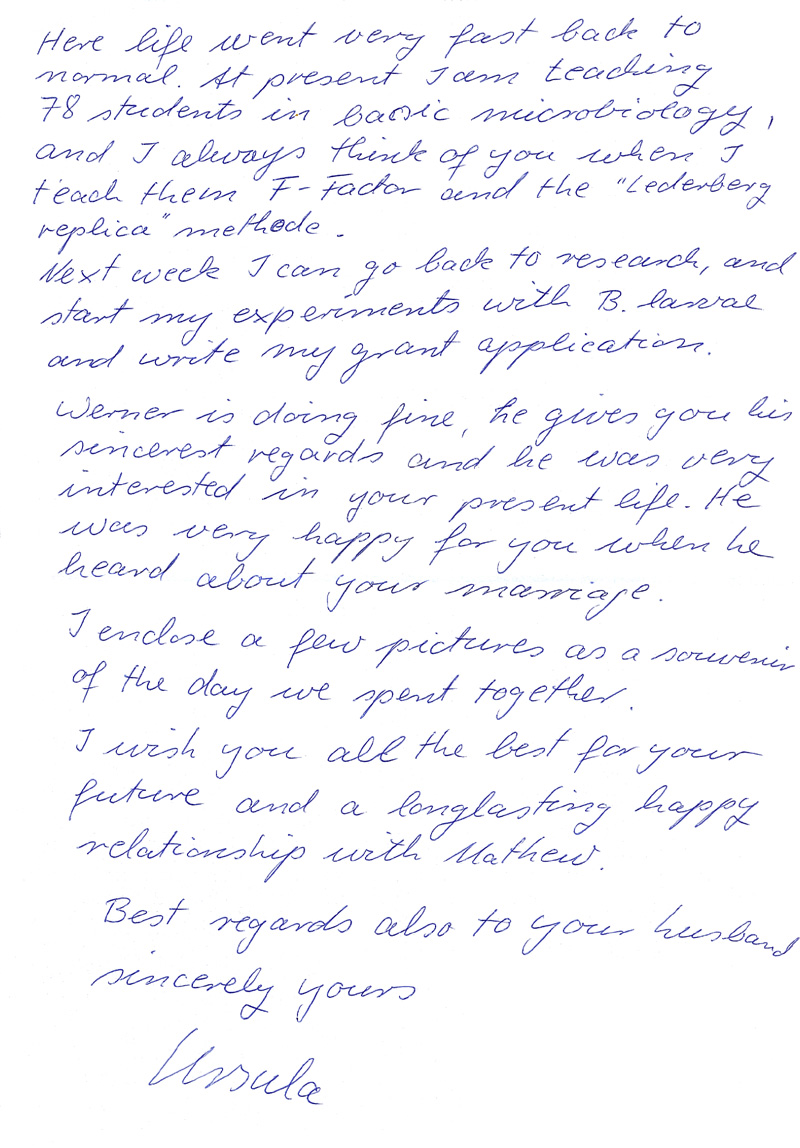 Here life went very fast back to
normal. At present I am teaching
78 students in basic microbiology,
and I always think of you when I
teach them F-Factor and the "Lederberg
replica" methode.
Next week I can go back to research, and
start my experiments with B. larvae
and write my grant application.
Werner is doing fine, he gives you his
sincerest regards and he was very
interested in your present life. He
was very happy for you when he
heard about your marriage.
I enclose a few pictures as a souvenir
of the day we spent together.
I wish you all the best for your
future and a longlasting happy
relationship with Mathew.
Best regards also to your husband
sincerely yours
Ursula